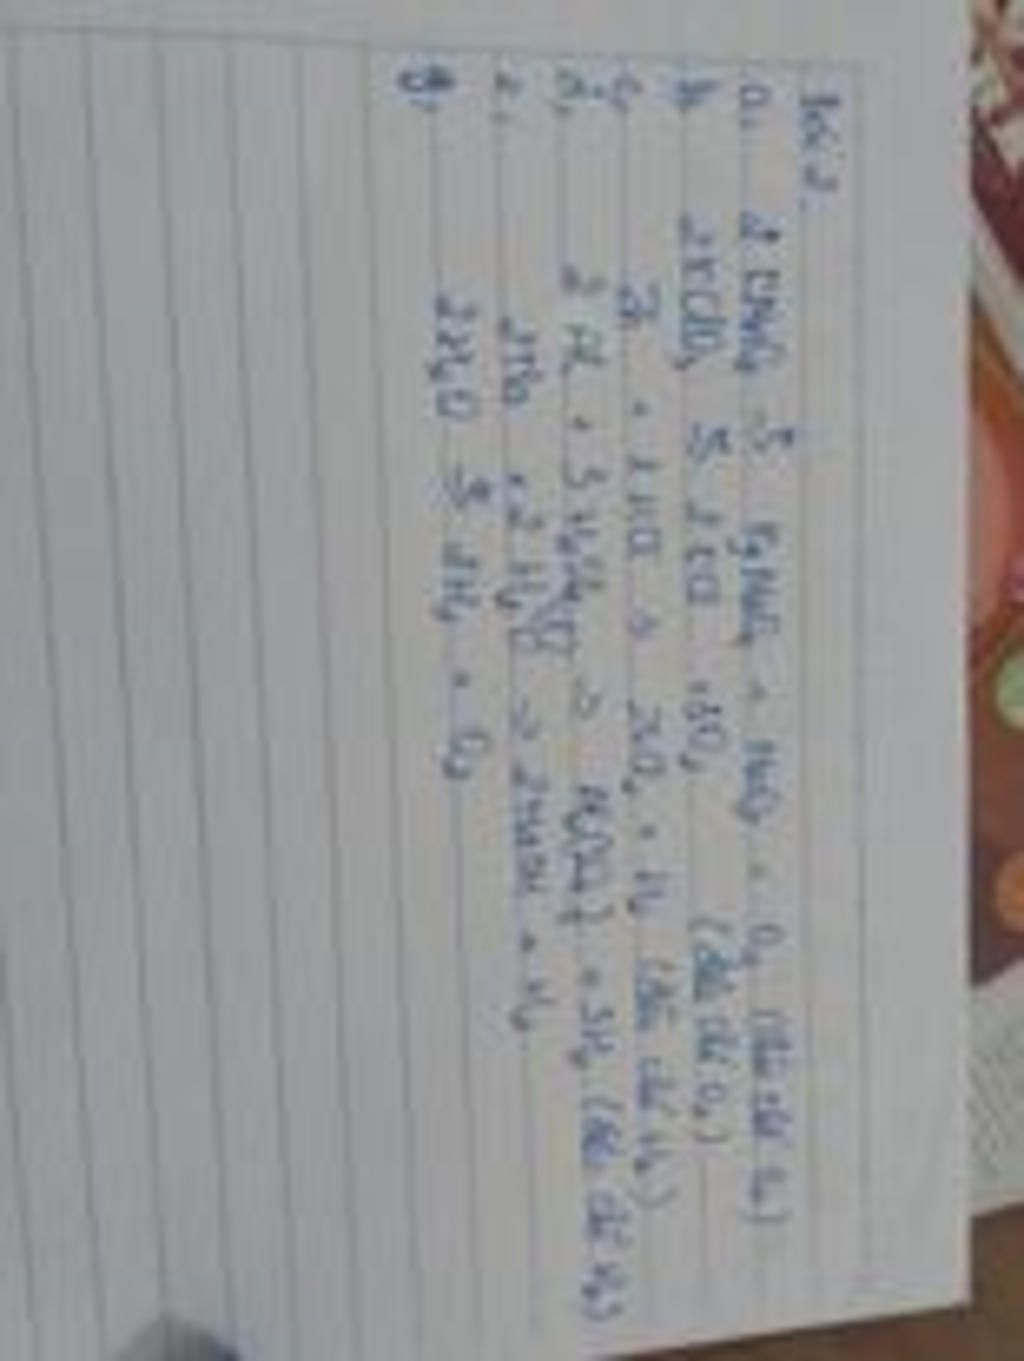 Bài 2.
a. 2 KMnO4 → K2MnO4 + MnO2 + O2 (điều chế O2)
b 2KClO3 → 2 KCl + 3O2 (điều chế O2)
c, + 2 HCl → + H2 (điều chế H2)
d, 2 Al + 3 H2SO4 → + 3H2 (điều chế H2)
e, 2Na + 2 H2O → 2NaOH + H2
g, 2H2O → 2H2 + O2